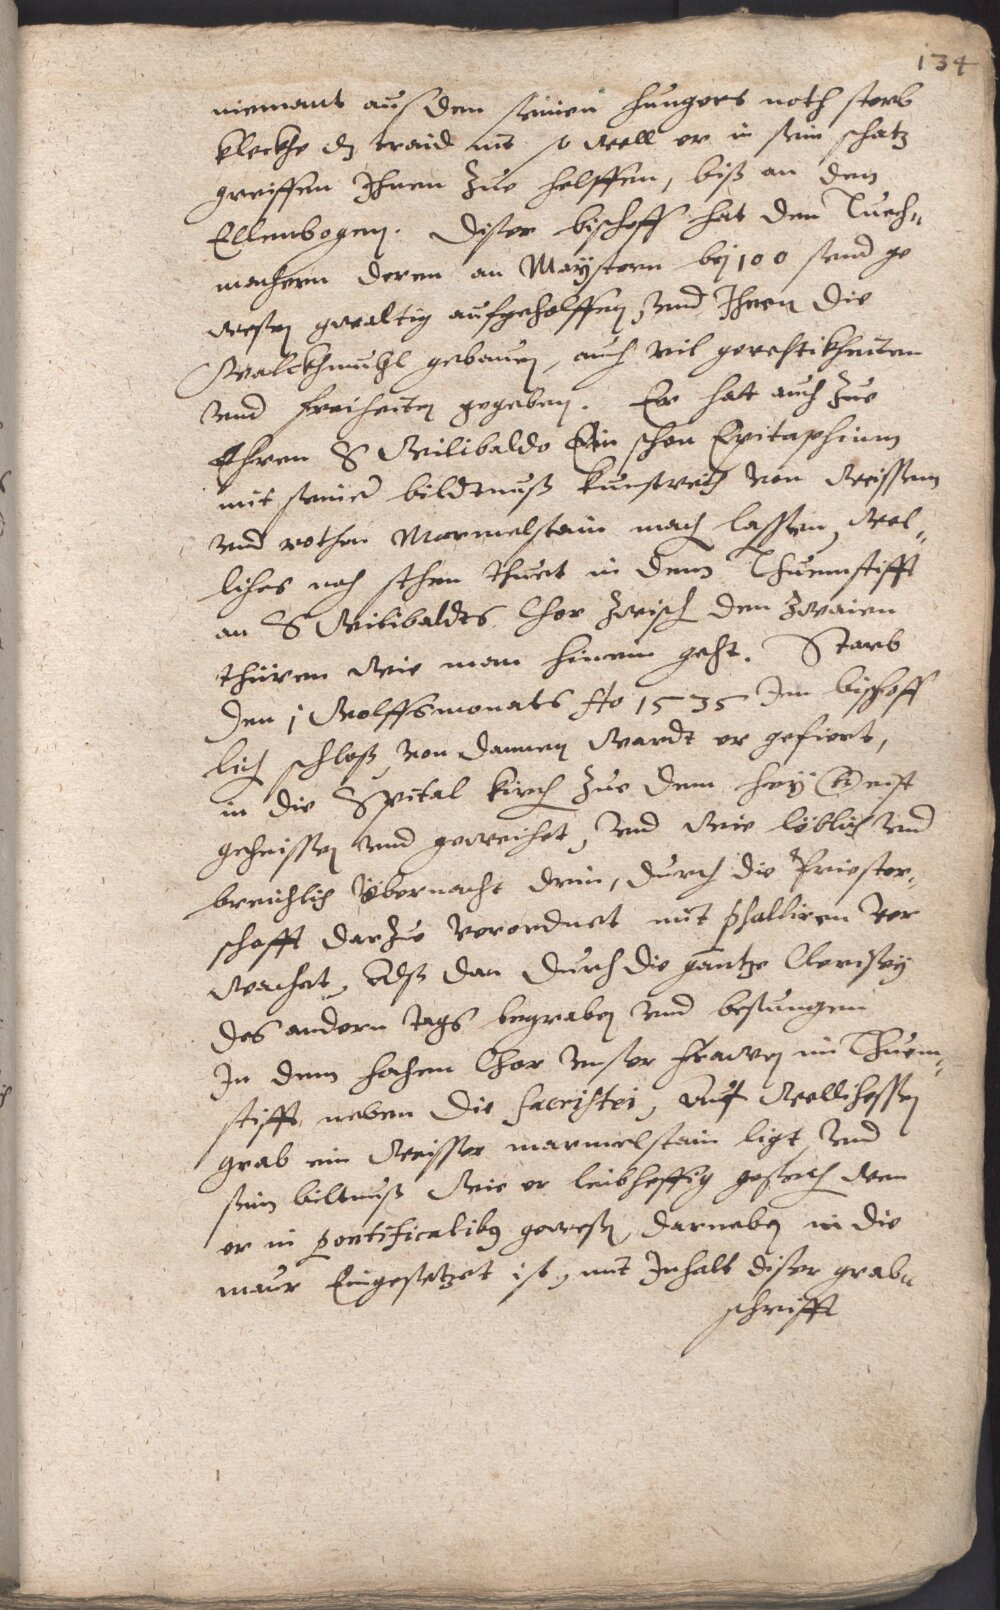 134
niemant aus den seinen hungers noth sterb
kleckhe dz traid nit so well er in sein schatz
greiffen Ihnen zue helffen, biß an den
Ellenbogen. Diser bischoff hat den Tuech„
machern deren an Maystern bej 100 seind ge
wesen gwaltig aufgeholffen, vnd Ihnen die
Walckhmuhl gebauen, auch vil gerechtikheiten
vnd freiheiten gegeben. Er hatt auch zue
Ehren S Wilibaldo Ein schon Epitaphium
mit seiner bildtnuß kunstreich von Weissem
vnd rothen Marmelstain mach lassen, Wel„
liches noch stehen thuet in dem Thuemstifft
an S Wilibaldts Chor zwisch den zwaien
thüren Wie man hinein geht. Starb
den 1 Wolffsmonats Ao 1535 Im bischoff
lich schloß, von dannen Wardt er gefiert,
in die Spital kirch zue dem hey Geist
geheissen vnd geweihet, vnd Wie löblich vnd
breichlich Übernacht drin, durch die Priester„
schafft darzue verordnet mit psalliren ver
wachet, Alß dan durch die gantze Clerisey
des andern tags begraben vnd besungen
In dem hohen Chor vnser frawen im Thuem„
stifft neben die sacristei, Auf Wellichessen
grab ein Weisser marmelstain ligt, vnd
sein biltnuß Wie er leibhefftig gesech wen
er in pontificalibus gewesen, darneben in die
maur Eingesetzet ist, mit Inhalt diser grab„
schrifft